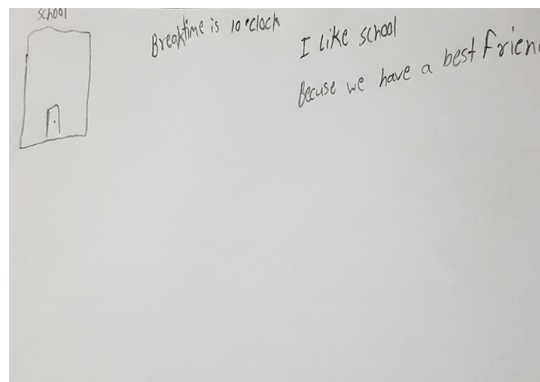 school
Breaktime is 10 o'clock
I like school
Becuse we have a best frien